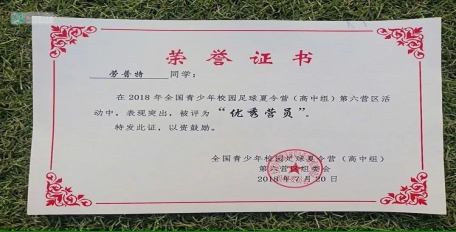 荣誉证书
劳普特 同学：
在2018年全国青少年校园足球夏令营（高中组）第六营区活
动中，表现突出，被评为“优秀营员”。
特发此证，以资鼓励。
全国青少年校园足球夏令营（高中组）
第六营区组委会
2018年7月20日